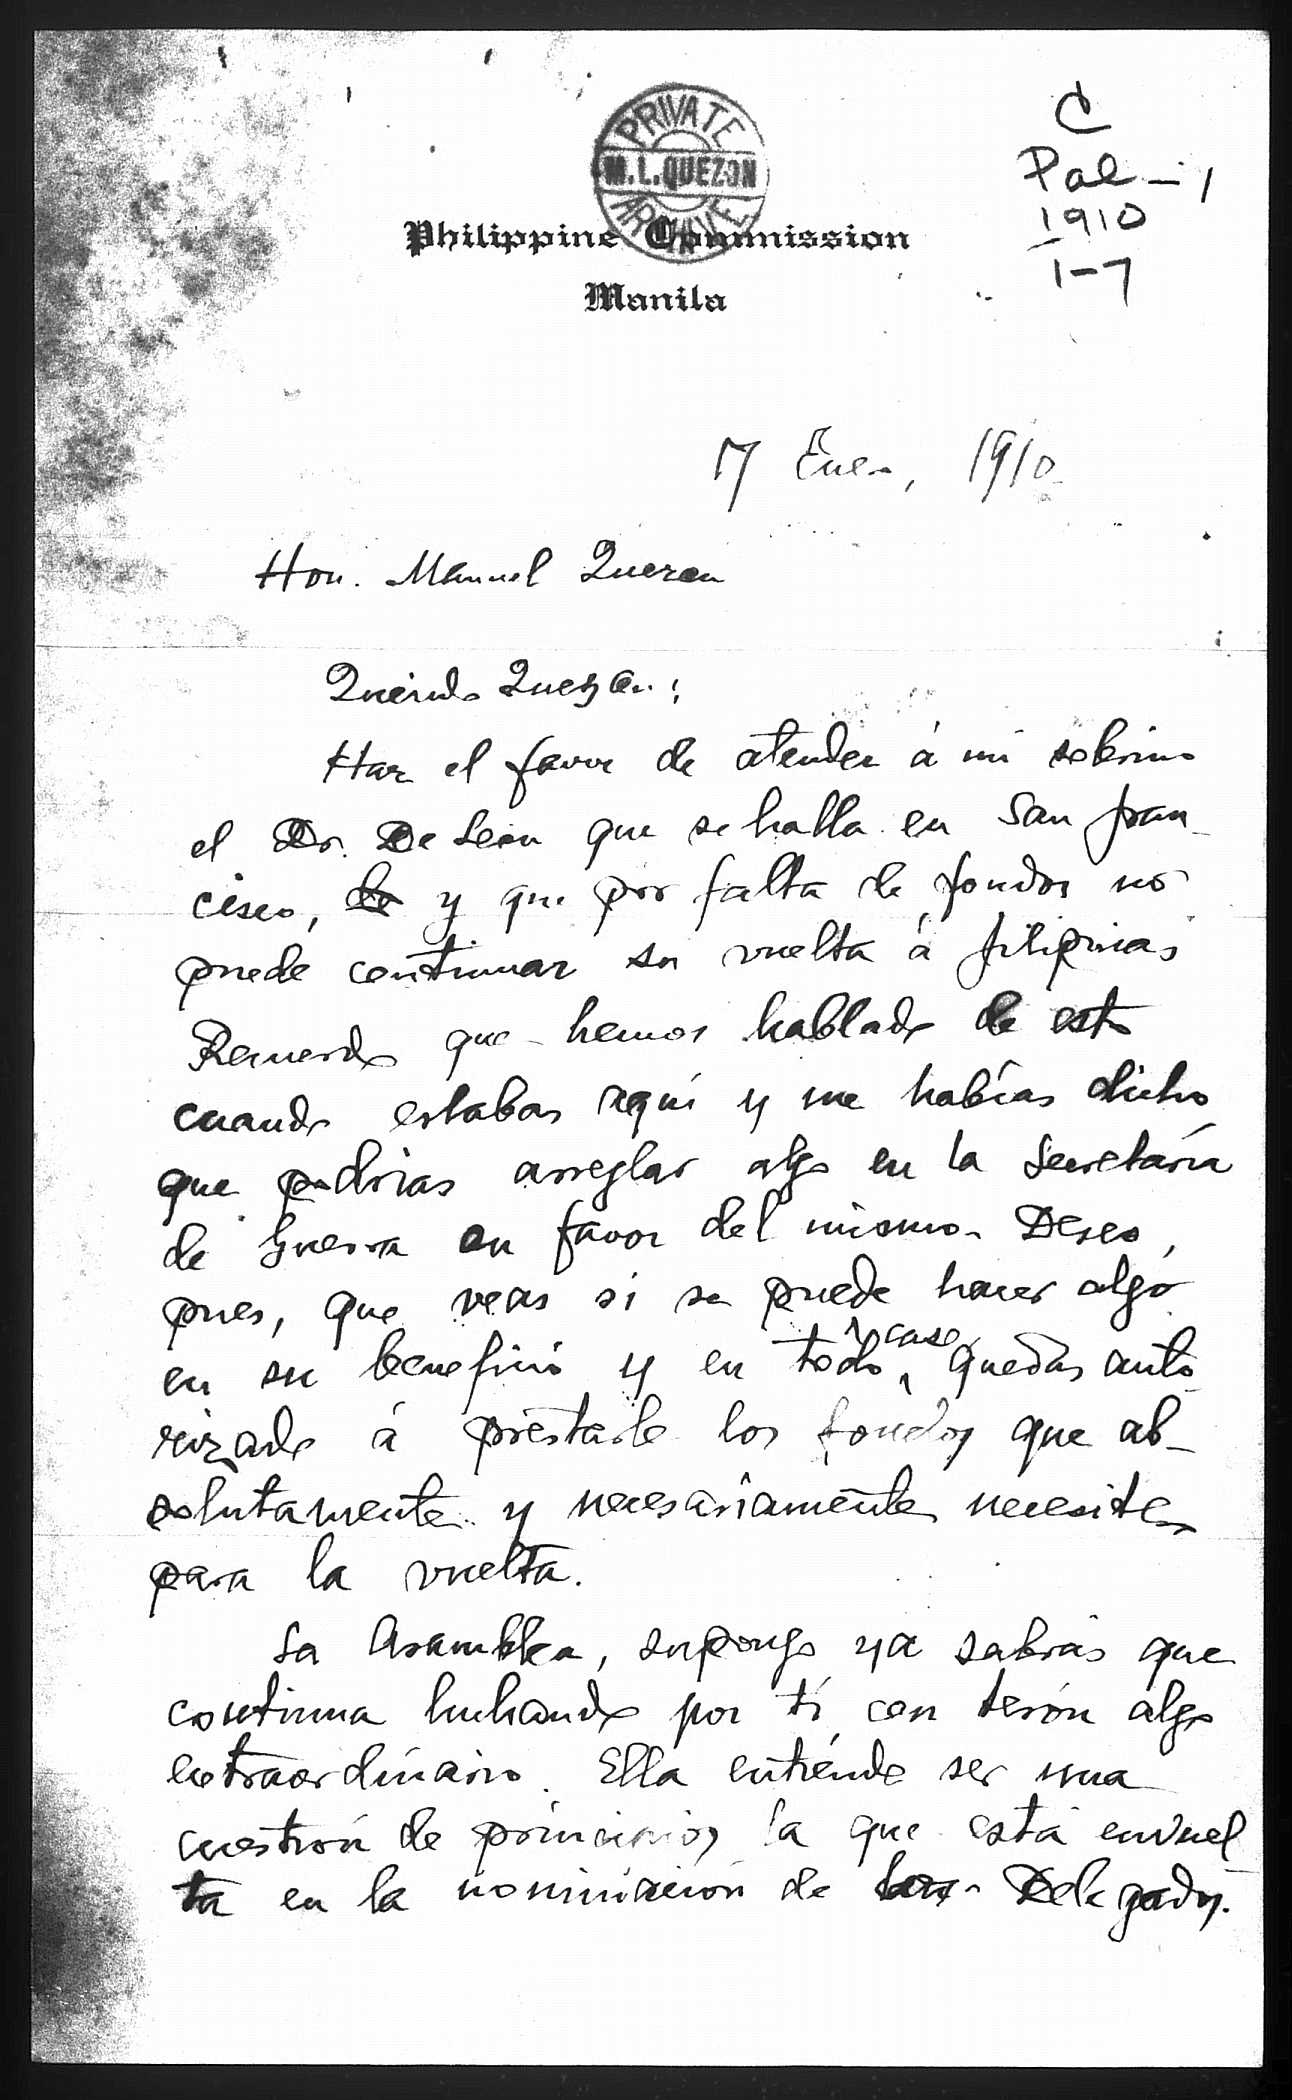 PRIVATE
M. L. QUEZON
ARCHIVE
C
Pal-1
1910
1-7
Philippine Commission
Manila
17 Enero, 1910
Hon. Manuel Quezon
Querido Quezon:
Haz el favor de atender á mi sobrino
el Dr. De Leon que se halla en San Fran-
cisco, y que por falta de fondos no
puede continuar su vuelta á Filipinas
Recuerdo que hemos hablado de esto
cuando estabas aquí y me habías dicho
que podrias arreglar algo en la Secretaría
de Guerra en favor del mismo. Deseo,
pues, que veas si se puede hacer algo
en su beneficio y en todo caso, quedas auto-
rizado á prestarle los fondos que ab-
solutamente y necesariamente necesite
para la vuelta.
La Asamblea, supongo ya sabrás que
continua luchando por tí con tesón algo
extraordinario. Ella entiende ser una
cuestión de principios la que está envuel-
ta en la nominación de Delegados.